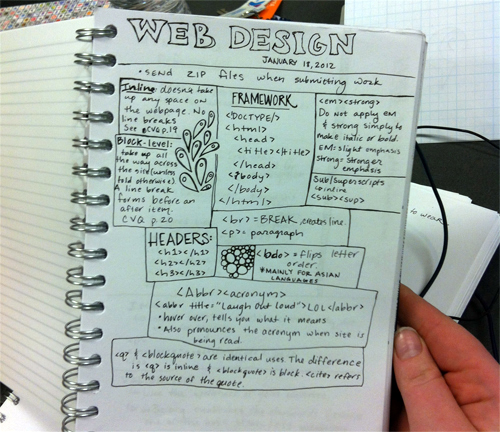 WEB DESIGN
JANUARY 18, 2012
• SEND ZIP files when submitting work
Inline: doesn't take
up any space on
the webpage. No
line breaks
See CVQ p.19
Block-level:
take up all
the way across
the site (unless
told otherwise)
A line break
forms before an
after item.
CVQ p. 20
FRAMEWORK
<DOCTYPE/>
<html>
<head>
<title></title>
</head>
<body>
</body>
</html>
<em><strong>
Do not apply em
& strong simply to
make italic or bold.
EM: slight emphasis
Strong: Stronger
emphasis
Sub/superscripts
inline
<sub><sup>
<br> = BREAK, creates line.
<p> = paragraph
HEADERS:
<h1></h1>
<h2></h2>
<h3></h3>
<bdo> = flips letter
order.
*MAINLY FOR ASIAN
LANGUAGES
<Abbr><acronym>
<abbr title="Laugh out loud">LOL</abbr>
• hover over, tells you what it means
• Also pronounces the acronym when site is
being read.
<q> & <blockquote> are identical uses The difference
is <q> is inline & <blockquote> is block. <cite> refers
to the source of the quote.
to wear